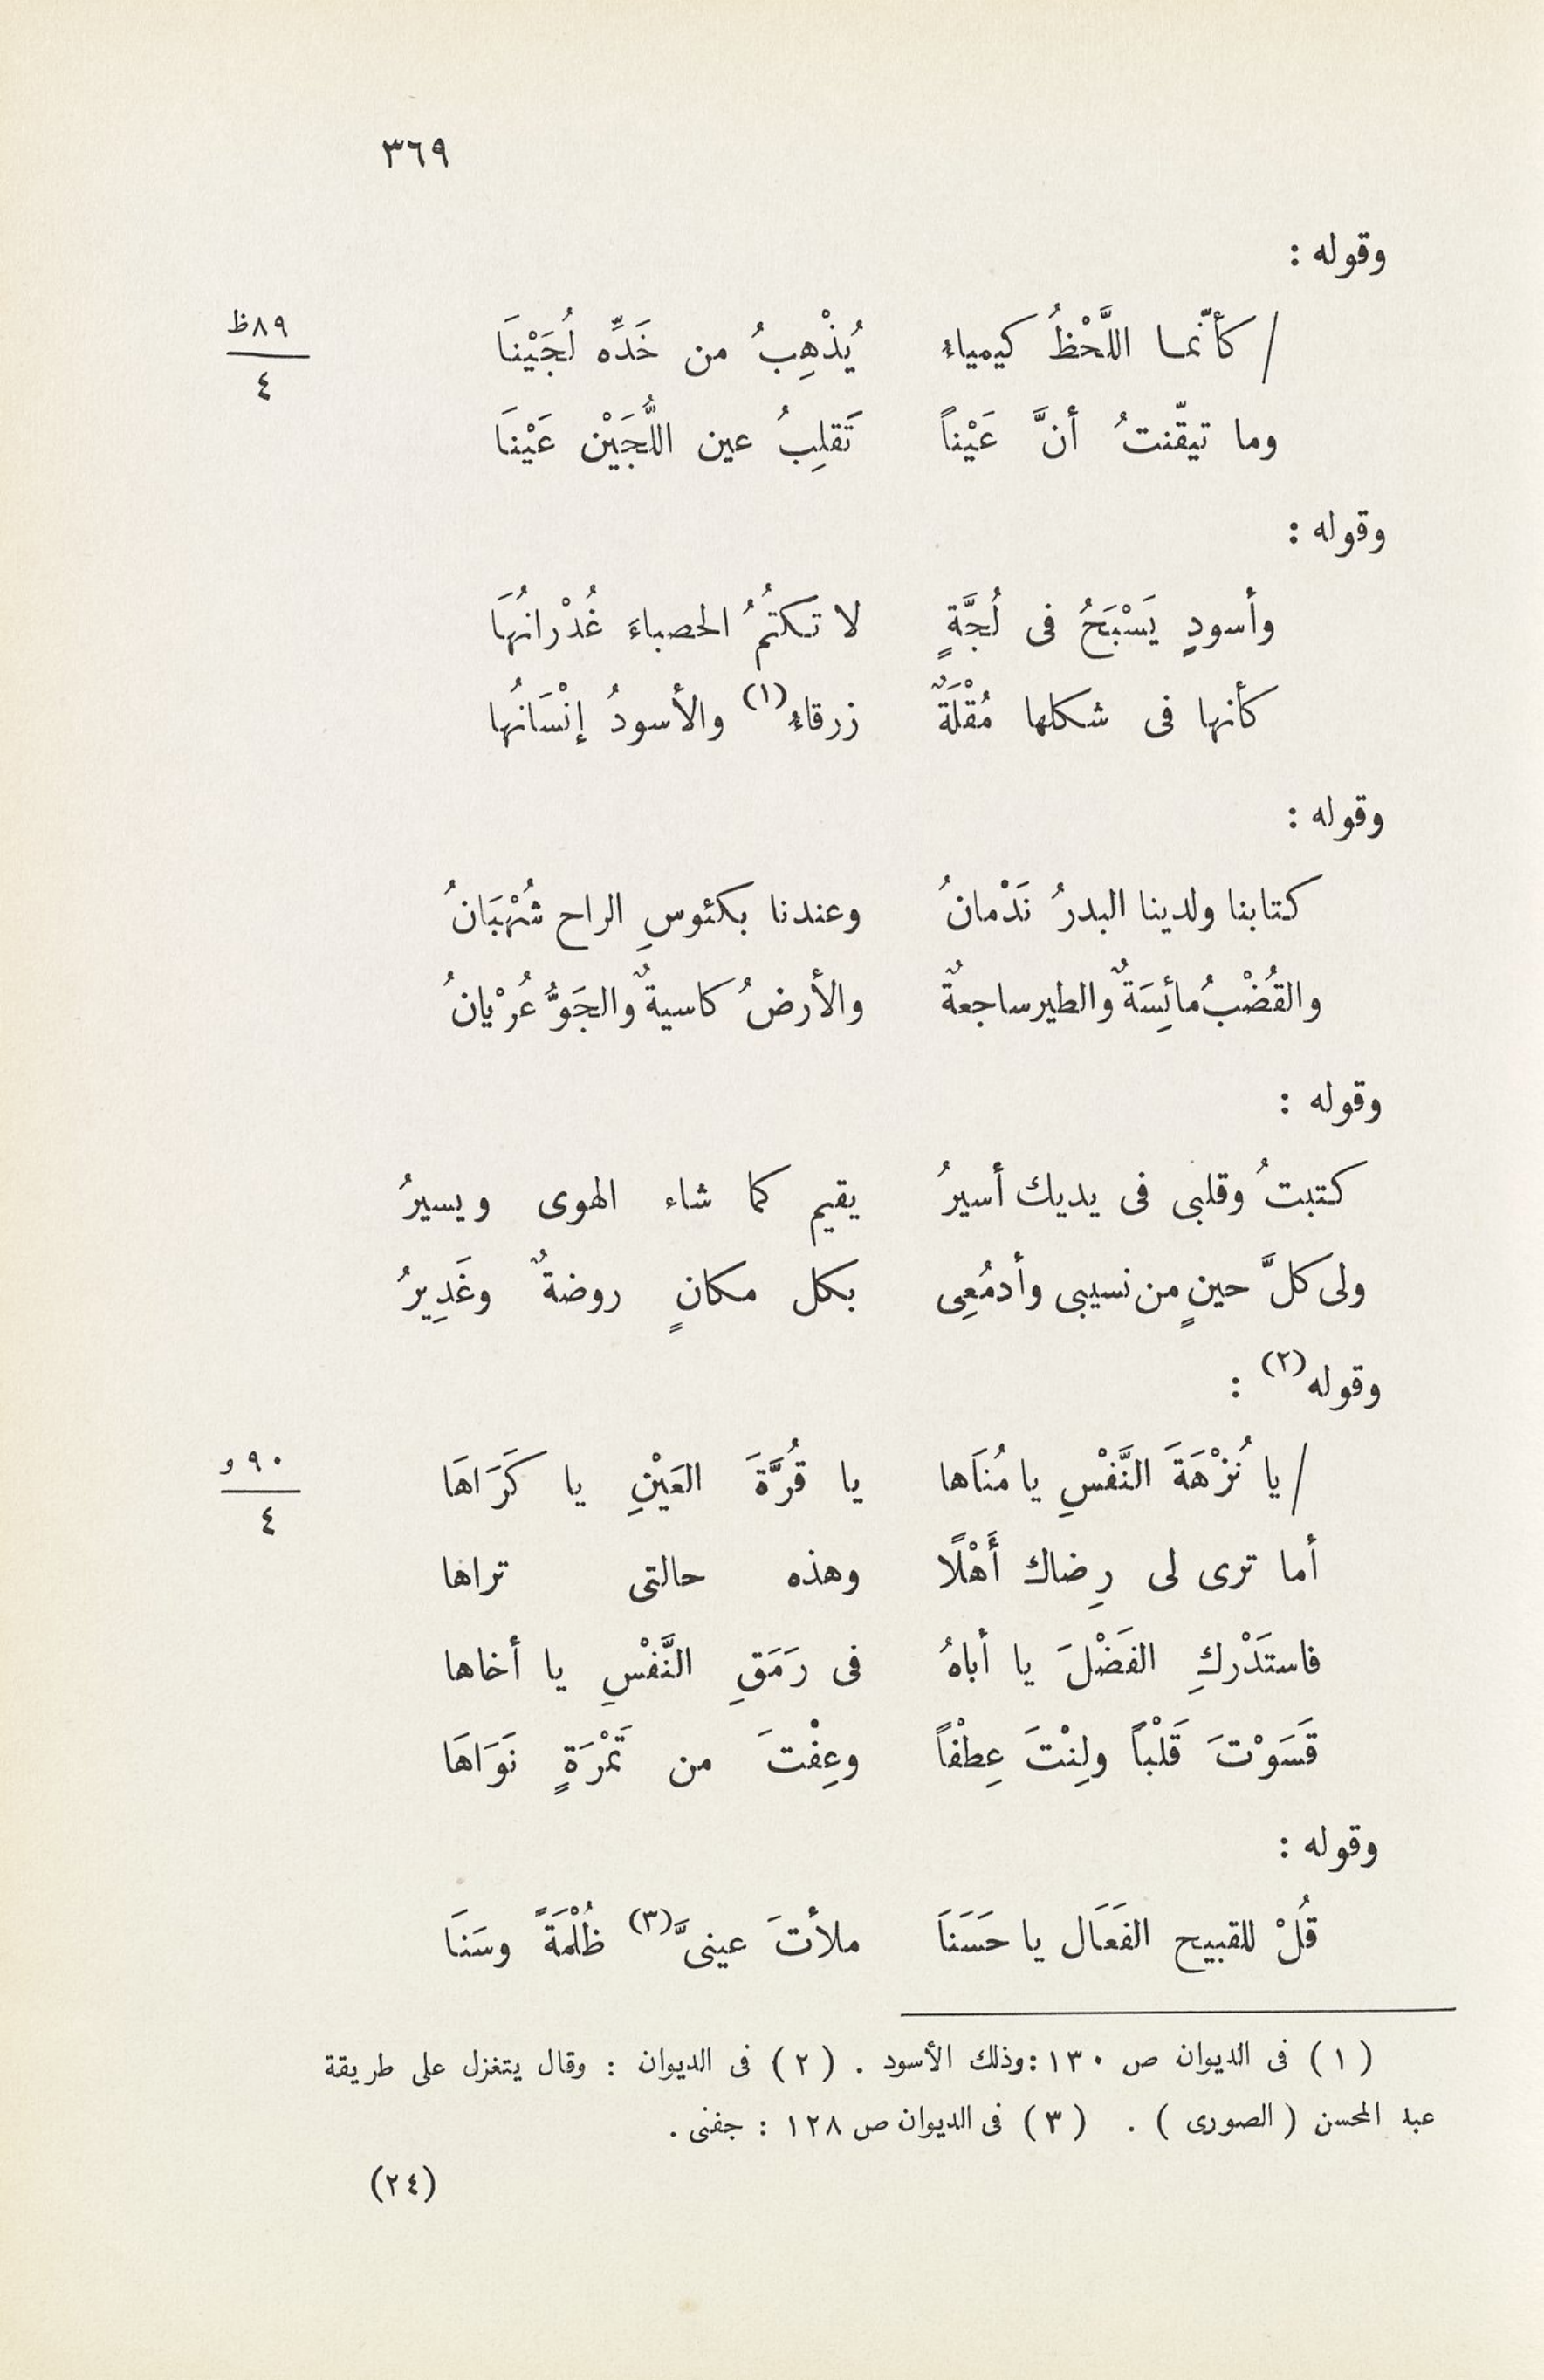 ٣٦٩
وقوله :
/ كأنّما اللَّحْظُ كيمياءُ يُذْهِبُ من خَدِّه لُجَيْنَا
٨٩ظ
٤
وما تيقّنتُ أنَّ عَيْناً تَقلِبُ عين اللُّجَيْن عَيْنَا
وقوله :
وأسودٍ يَسْبَحُ فى لُجَّةٍ لا تكتُمُ الحصباءَ غُدْرانُهَا
كأنها فى شكلها مُقْلَةٌ زرقاءُ(١) والأسودُ إنْسَانُها
وقوله :
كتابنا ولدينا البدرُ نَدْمانُ وعندنا بكئوسِ الراح شُهْبَانُ
والقُضْبُ مائِسَةٌ والطير ساجعةٌ والأرضُ كاسيةٌ والجَوُّ عُرْيانُ
وقوله :
كتبتُ وقلبى فى يديك أسيرُ يقيم كما شاء الهوى ويسيرُ
ولى كلَّ حينٍ من نسيبى وأدمُعِى بكل مكانٍ روضةٌ وغَدِيرُ
وقوله(٢) :
/ يا نُزْهَةَ النَّفْسِ يا مُنَاها يا قُرَّةَ العَيْنِ يا كَرَاهَا
٩٠و
٤
أما ترى لى رِضاك أَهْلًا وهذه حالتى تراها
فاستَدْركِ الفَضْلَ يا أباهُ فى رَمَقِ النَّفْسِ يا أخاها
قَسَوْتَ قَلْباً ولِنْتَ عِطْفاً وعِفْتَ من تَمْرَةٍ نَوَاهَا
وقوله :
قُلْ للقبيح الفَعَال يا حَسَنَا ملأتَ عينىَّ(٣) ظُلْمَةً وسَنَا
(١) فى الديوان ص ١٣٠ : وذلك الأسود . (٢) فى الديوان : وقال يتغزل على طريقة
عبد المحسن ( الصورى ) . (٣) فى الديوان ص ١٢٨ : جفنى .
(٢٤)